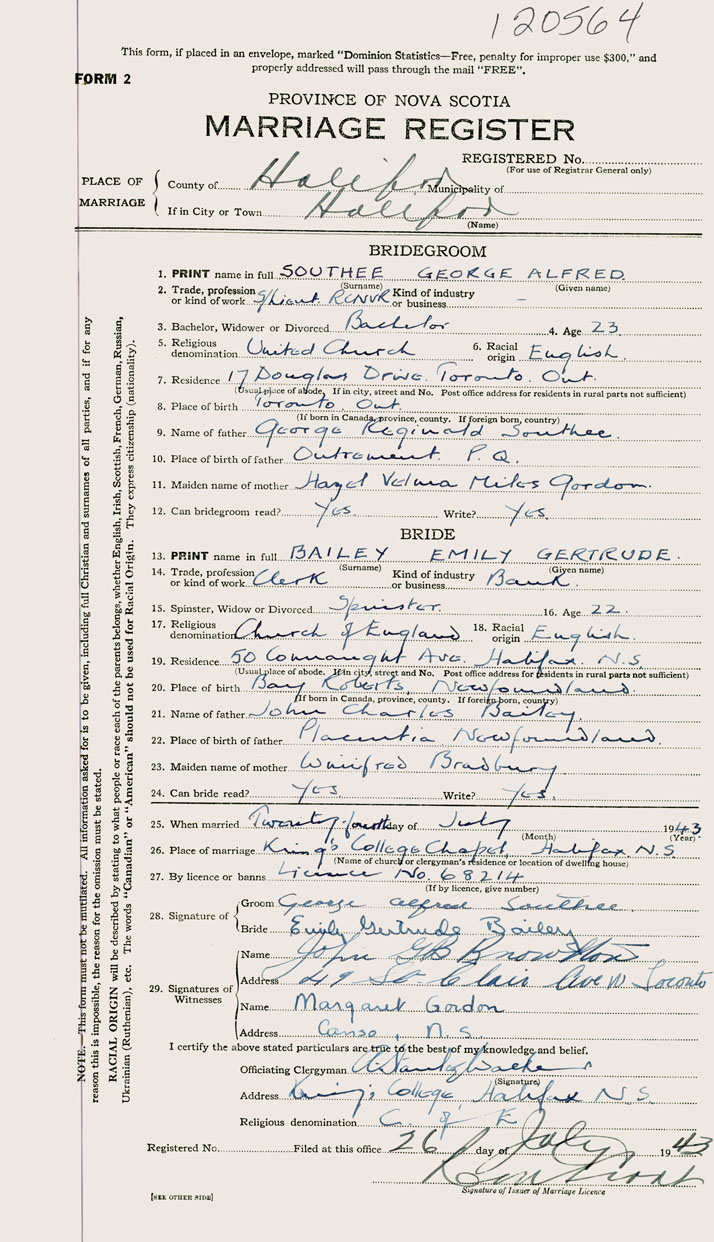 120564
This form, if placed in an envelope, marked "Dominion Statistics—Free, penalty for improper use $300," and
properly addressed will pass through the mail "FREE".
FORM 2
PROVINCE OF NOVA SCOTIA
MARRIAGE REGISTER
REGISTERED No.
(For use of Registrar General only)
PLACE OF MARRIAGE
County of Halifax Municipality of
If in City or Town Halifax
(Name)
BRIDEGROOM
1. PRINT name in full SOUTHEE GEORGE ALFRED
(Surname) (Given name)
2. Trade, profession or kind of work S/Lieut. RCNVR Kind of industry or business –
3. Bachelor, Widower or Divorced Bachelor 4. Age 23
5. Religious denomination United Church 6. Racial origin English.
7. Residence 17 Douglas Drive. Toronto. Ont.
(Usual place of abode. If in city, street and No. Post office address for residents in rural parts not sufficient)
8. Place of birth Toronto. Ont.
(If born in Canada, province, county. If foreign born, country)
9. Name of father George Reginald Southee.
10. Place of birth of father Outremont. P.Q.
11. Maiden name of mother Hazel Velma Miles Gordon.
12. Can bridegroom read? Yes. Write? Yes.
BRIDE
13. PRINT name in full BAILEY EMILY GERTRUDE.
(Surname) (Given name)
14. Trade, profession or kind of work Clerk Kind of industry or business Bank.
15. Spinster, Widow or Divorced Spinster. 16. Age 22.
17. Religious denomination Church of England 18. Racial origin English.
19. Residence 50 Connaught Ave. Halifax. N.S.
(Usual place of abode. If in city, street and No. Post office address for residents in rural parts not sufficient)
20. Place of birth Bay Roberts, Newfoundland.
(If born in Canada, province, county. If foreign born, country)
21. Name of father John Charles Bailey.
22. Place of birth of father Placentia Newfoundland.
23. Maiden name of mother Winifred Bradbury
24. Can bride read? Yes Write? Yes.
25. When married Twenty-fourth day of July 1943
(Month) (Year)
26. Place of marriage King's College Chapel, Halifax. N.S.
(Name of church or clergyman's residence or location of dwelling house)
27. By licence or banns Licence No. 68214
(If by licence, give number)
28. Signature of
Groom George Alfred Southee.
Bride Emily Gertrude Bailey
29. Signatures of Witnesses
Name John
Address 49 St. Clair Ave W Toronto
Name Margaret Gordon
Address Canso, N.S.
I certify the above stated particulars are true to the best of my knowledge and belief.
Officiating Clergyman A. Stanley Walker
(Signature)
Address King's College Halifax N.S.
Religious denomination C. of E.
Registered No. Filed at this office 26 day of July 1943
Signature of Issuer of Marriage Licence
[SEE OTHER SIDE]
NOTE.—This form must not be mutilated. All information asked for is to be given, including full Christian and surnames of all parties, and if for any
reason this is impossible, the reason for the omission must be stated.
RACIAL ORIGIN will be described by stating to what people or race each of the parents belongs, whether English, Irish, Scottish, French, German, Russian,
Ukrainian (Ruthenian), etc. The words "Canadian" or "American" should not be used for Racial Origin. They express citizenship (nationality).